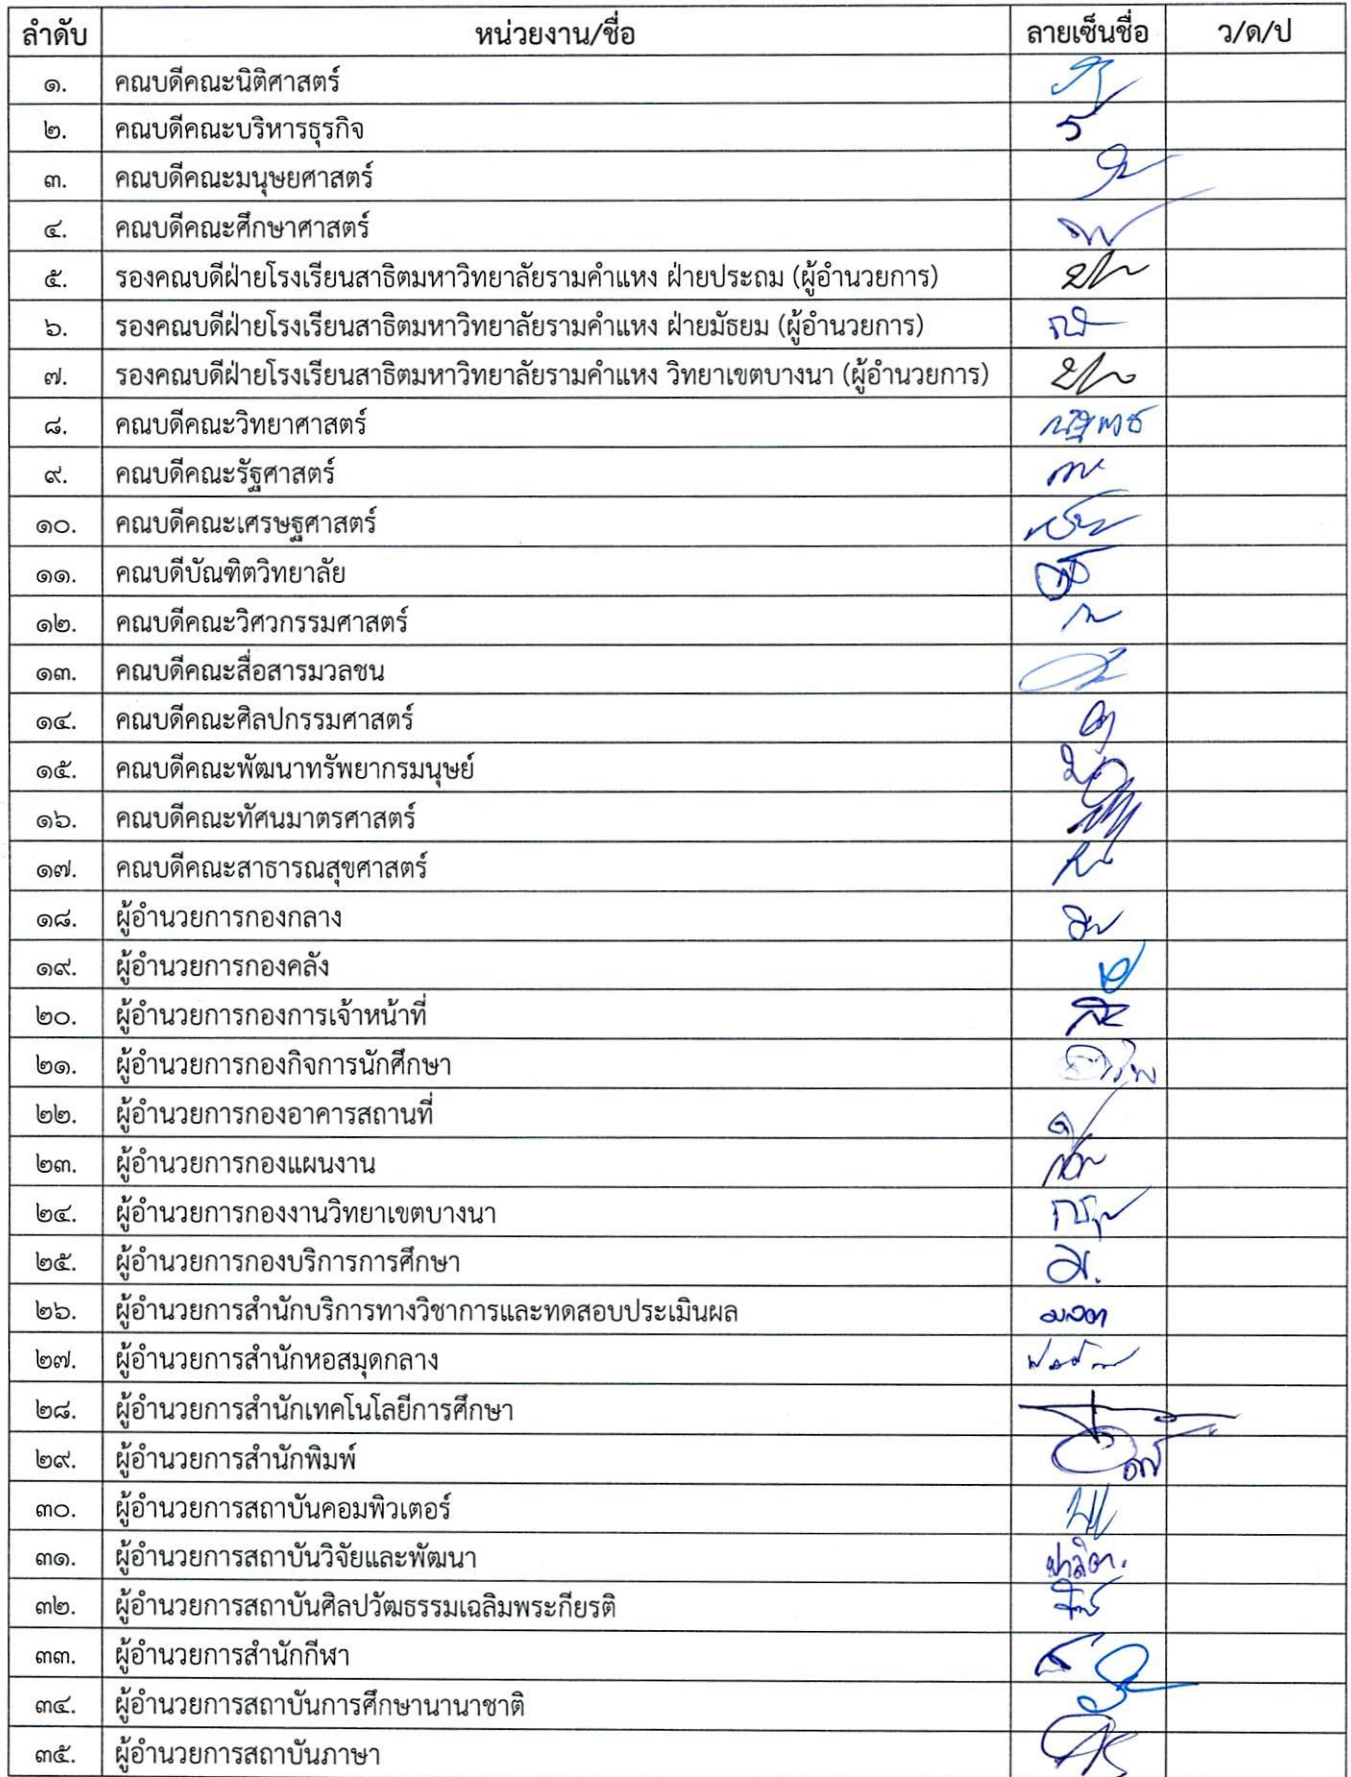 ลำดับ หน่วยงาน/ชื่อ ลายเซ็นชื่อ ว/ด/ป
๑. คณบดีคณะนิติศาสตร์
๒. คณบดีคณะบริหารธุรกิจ
๓. คณบดีคณะมนุษยศาสตร์
๔. คณบดีคณะศึกษาศาสตร์
๕. รองคณบดีฝ่ายโรงเรียนสาธิตมหาวิทยาลัยรามคำแหง ฝ่ายประถม (ผู้อำนวยการ)
๖. รองคณบดีฝ่ายโรงเรียนสาธิตมหาวิทยาลัยรามคำแหง ฝ่ายมัธยม (ผู้อำนวยการ)
๗. รองคณบดีฝ่ายโรงเรียนสาธิตมหาวิทยาลัยรามคำแหง วิทยาเขตบางนา (ผู้อำนวยการ)
๘. คณบดีคณะวิทยาศาสตร์
๙. คณบดีคณะรัฐศาสตร์
๑๐. คณบดีคณะเศรษฐศาสตร์
๑๑. คณบดีบัณฑิตวิทยาลัย
๑๒. คณบดีคณะวิศวกรรมศาสตร์
๑๓. คณบดีคณะสื่อสารมวลชน
๑๔. คณบดีคณะศิลปกรรมศาสตร์
๑๕. คณบดีคณะพัฒนาทรัพยากรมนุษย์
๑๖. คณบดีคณะทัศนมาตรศาสตร์
๑๗. คณบดีคณะสาธารณสุขศาสตร์
๑๘. ผู้อำนวยการกองกลาง
๑๙. ผู้อำนวยการกองคลัง
๒๐. ผู้อำนวยการกองการเจ้าหน้าที่
๒๑. ผู้อำนวยการกองกิจการนักศึกษา
๒๒. ผู้อำนวยการกองอาคารสถานที่
๒๓. ผู้อำนวยการกองแผนงาน
๒๔. ผู้อำนวยการกองงานวิทยาเขตบางนา
๒๕. ผู้อำนวยการกองบริการการศึกษา
๒๖. ผู้อำนวยการสำนักบริการทางวิชาการและทดสอบประเมินผล
๒๗. ผู้อำนวยการสำนักหอสมุดกลาง
๒๘. ผู้อำนวยการสำนักเทคโนโลยีการศึกษา
๒๙. ผู้อำนวยการสำนักพิมพ์
๓๐. ผู้อำนวยการสถาบันคอมพิวเตอร์
๓๑. ผู้อำนวยการสถาบันวิจัยและพัฒนา
๓๒. ผู้อำนวยการสถาบันศิลปวัฒธรรมเฉลิมพระกียรติ
๓๓. ผู้อำนวยการสำนักกีฬา
๓๔. ผู้อำนวยการสถาบันการศึกษานานาชาติ
๓๕. ผู้อำนวยการสถาบันภาษา